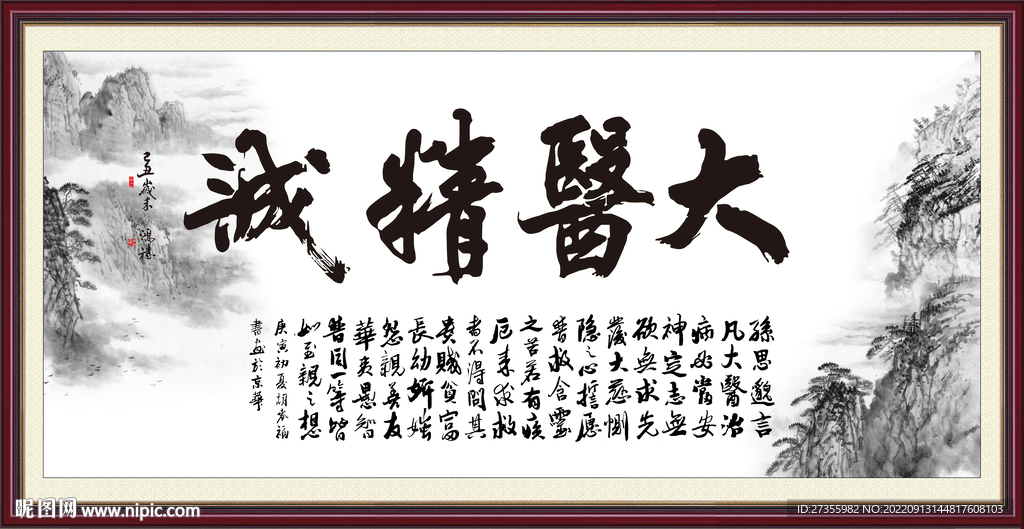 大醫精誠
己丑歲末
孫思邈言
凡大醫治
病必當安
神定志無
欲無求先
發大慈惻
隱之心誓願
普救含靈
之苦若有疾
厄來求救
者不得問其
貴賤貧富
長幼妍媸
怨親善友
華夷愚智
普同一等皆
如至親之想
庚寅初夏
書畫於京華
昵图网 www.nipic.com
ID:27355982 NO:20220913144817608103